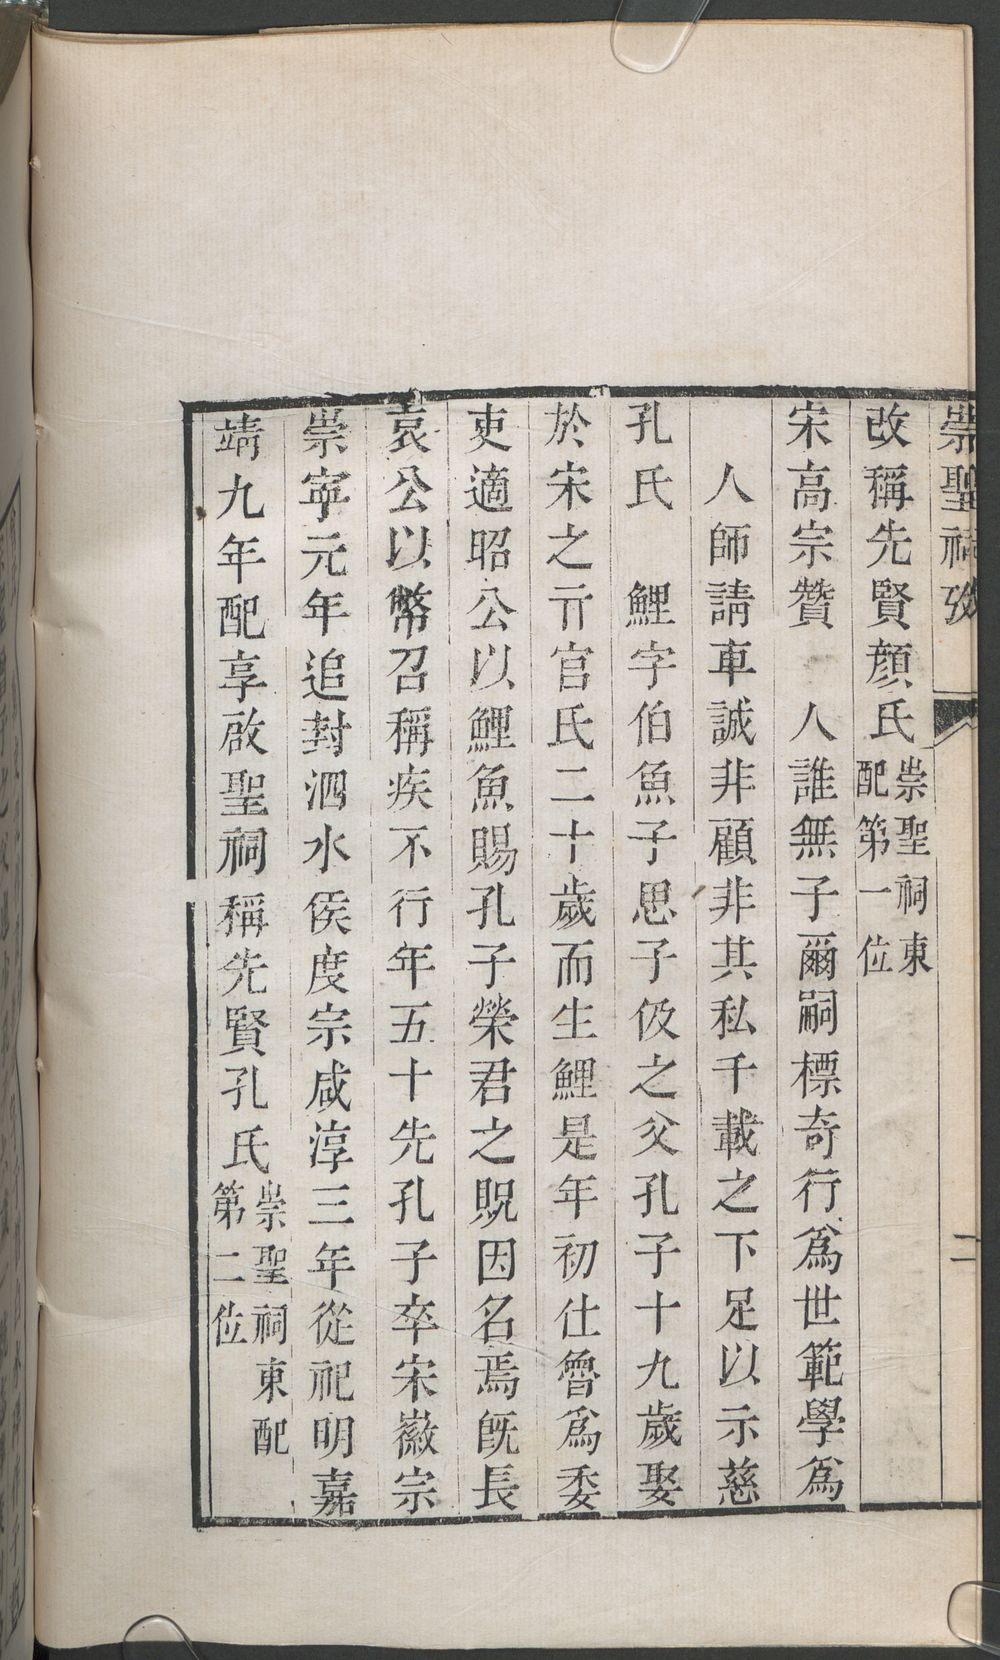 崇聖祠攷 二
改稱先賢顏氏崇聖祠東配第一位
宋高宗贊 人誰無子爾嗣標奇行爲世範學爲
人師請車誠非顧非其私千載之下足以示慈
孔氏 鯉字伯魚子思子伋之父孔子十九歲娶
於宋之亓官氏二十歲而生鯉是年初仕魯爲委
吏適昭公以鯉魚賜孔子榮君之貺因名焉旣長
哀公以幣召稱疾不行年五十先孔子卒宋徽宗
崇寧元年追封泗水侯度宗咸淳三年從祀明嘉
靖九年配享啟聖祠稱先賢孔氏崇聖祠東配第二位